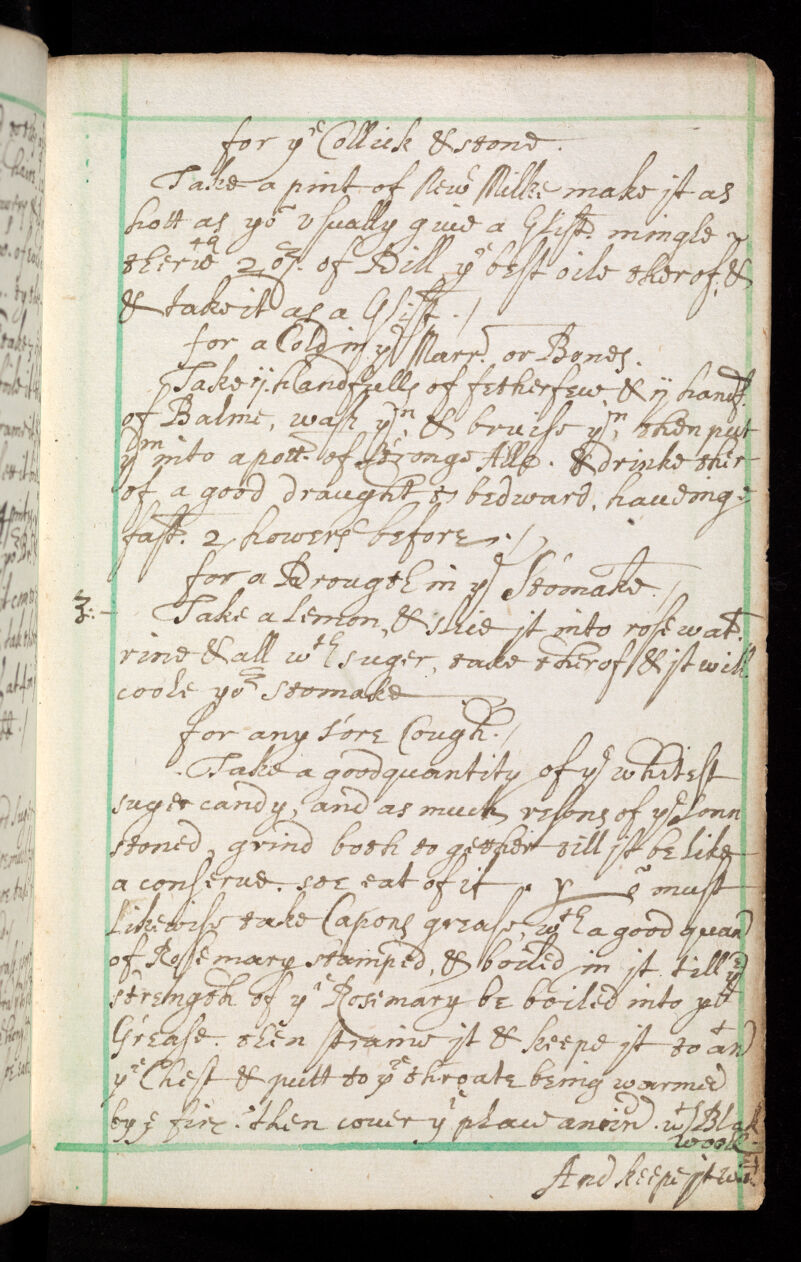 for yᵉ Collick & stone.
Take a pint of New Milke make jt as
hott as yoᵘ vsually giue a Glist. mingle
therwᵗʰ 2 oz. of Dill yᵉ best oile therof, &
& take it as a Glist. /
for a Cold in yᵉ Marr. or Bones.
Take ij. handfulls of fetherfew & ij handf.
of Balme, wash yᵐ, & bruise yᵐ, then put
yᵐ into a pott of stronge Alle. & drinke ther
of a good draught to bedward, haueinge
fast. 2 howers before. /
for a Drougth in yᵉ Stomake. /
3: – Take a Lemon, & slice jt into rose wat.
rine & all wᵗʰ suger, take therof & jt will
coole yoʳ stomake
for any sore Cough. /
Take a good quantity of yᵉ whitest
suger candy, and as much resons of yᵉ sonn
stoned, grind both to gether till jt be like
a conserue. soe eat of it. must
likewise take Capons grease, wᵗʰ a good quan
of Rosemary stamped, & boiled in jt till yᵉ
strength of yᵉ Rosemary be boiled into yᵗ
Grease. then straine jt & keepe jt to an
yᵉ Chest & putt to yᵉ throate being warmed
by yᵉ fire. then couer yᵉ place anoin wᵗʰ Blak
wooll
And keepe jt